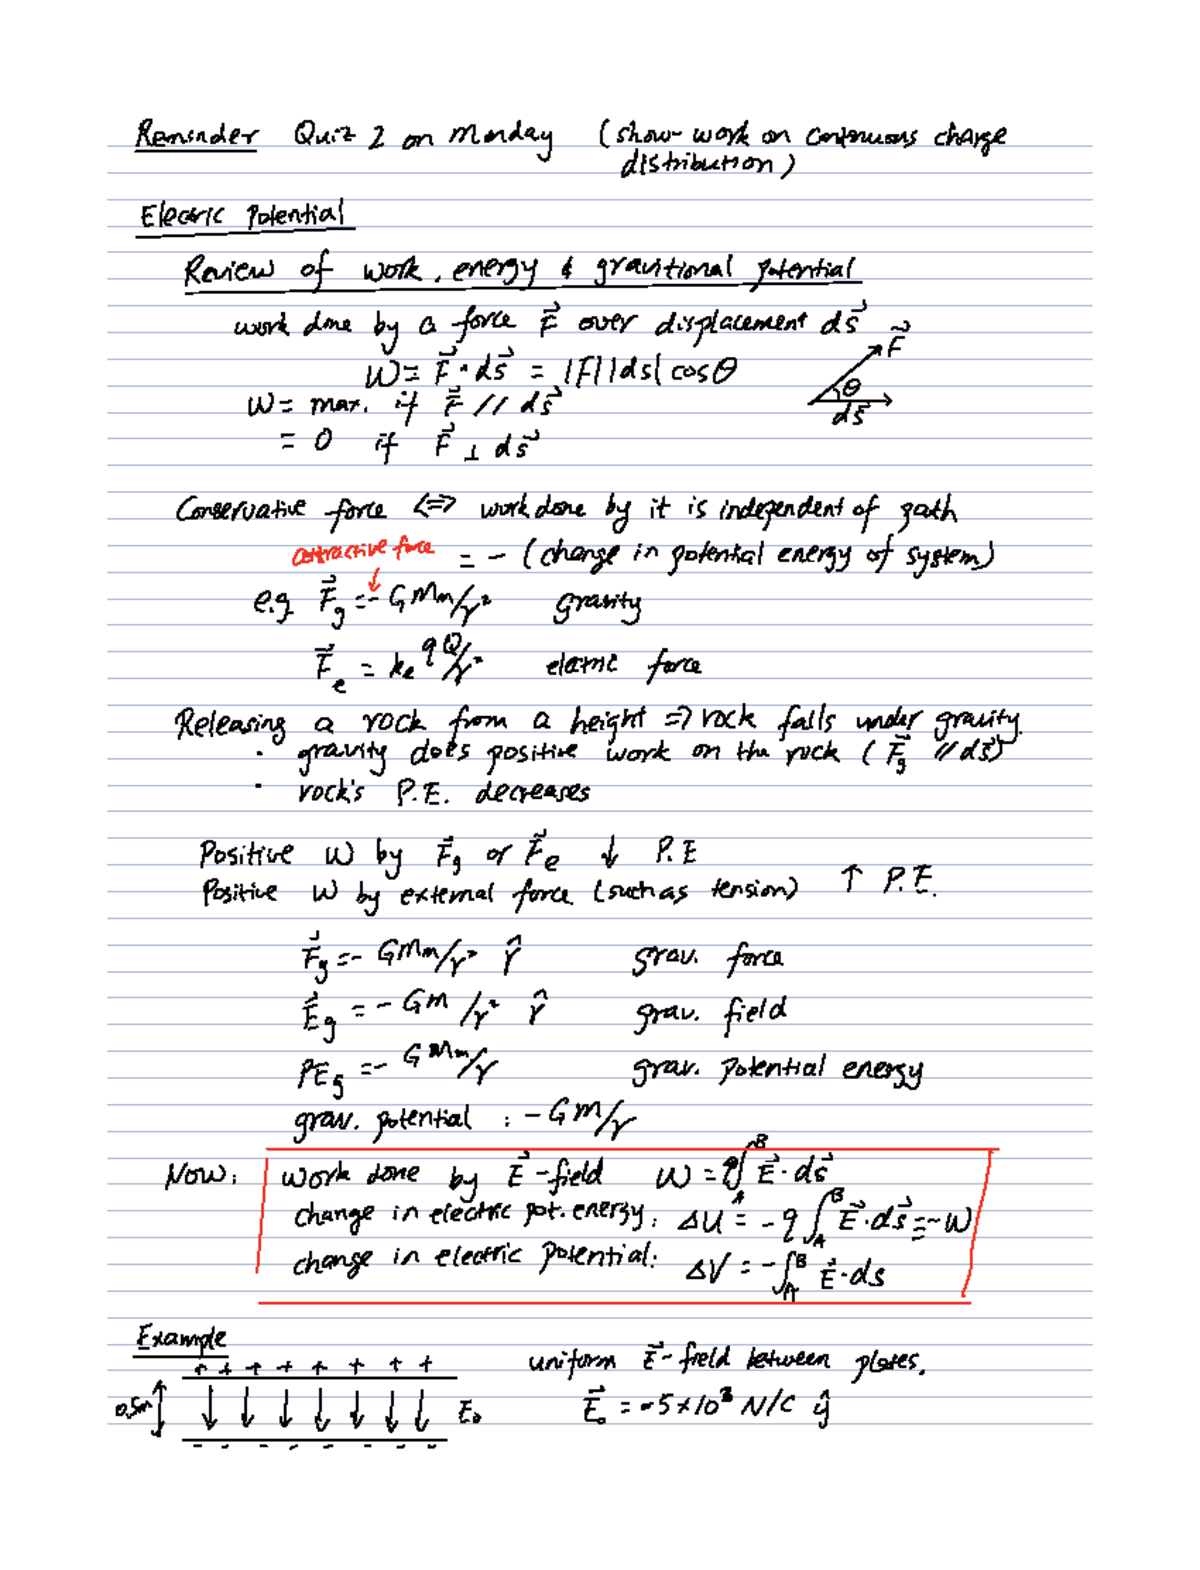 Reminder Quiz 2 on Monday (show-work on continuous charge
distribution)
Electric Potential
Review of work, energy & gravitional potential
work done by a force F⃗ over displacement ds⃗
W = F⃗ · ds⃗ = |F||ds| cosθ
F⃗
θ
ds⃗
W = max. if F⃗ // ds⃗
= 0 if F⃗ ⊥ ds⃗
Conservative force <=> work done by it is independent of path
attractive force = - (change in potential energy of system)
e.g. F⃗g = - GMm/r² gravity
F⃗e = ke qQ/r² electric force
Releasing a rock from a height => rock falls under gravity.
· gravity does positive work on the rock (F⃗g // ds⃗)
· rock's P.E. decreases
Positive W by F⃗g or F⃗e ↓ P.E
Positive W by external force (such as tension) ↑ P.E.
F⃗g = - GMm/r² r̂ grav. force
E⃗g = - Gm/r² r̂ grav. field
PEg = - GMm/r grav. potential energy
grav. potential : - GM/r
Now: work done by E⃗-field W = q∫_A^B E⃗ · ds⃗
change in electric pot. energy: ΔU = -q ∫_A^B E⃗ · ds⃗ = -W
change in electric potential: ΔV = -∫_A^B E⃗ · ds
Example
+ + + + + + + +
uniform E⃗-field between plates.
0.5m
E₀
E⃗₀ = -5×10³ N/C ŷ
- - - - - - - -